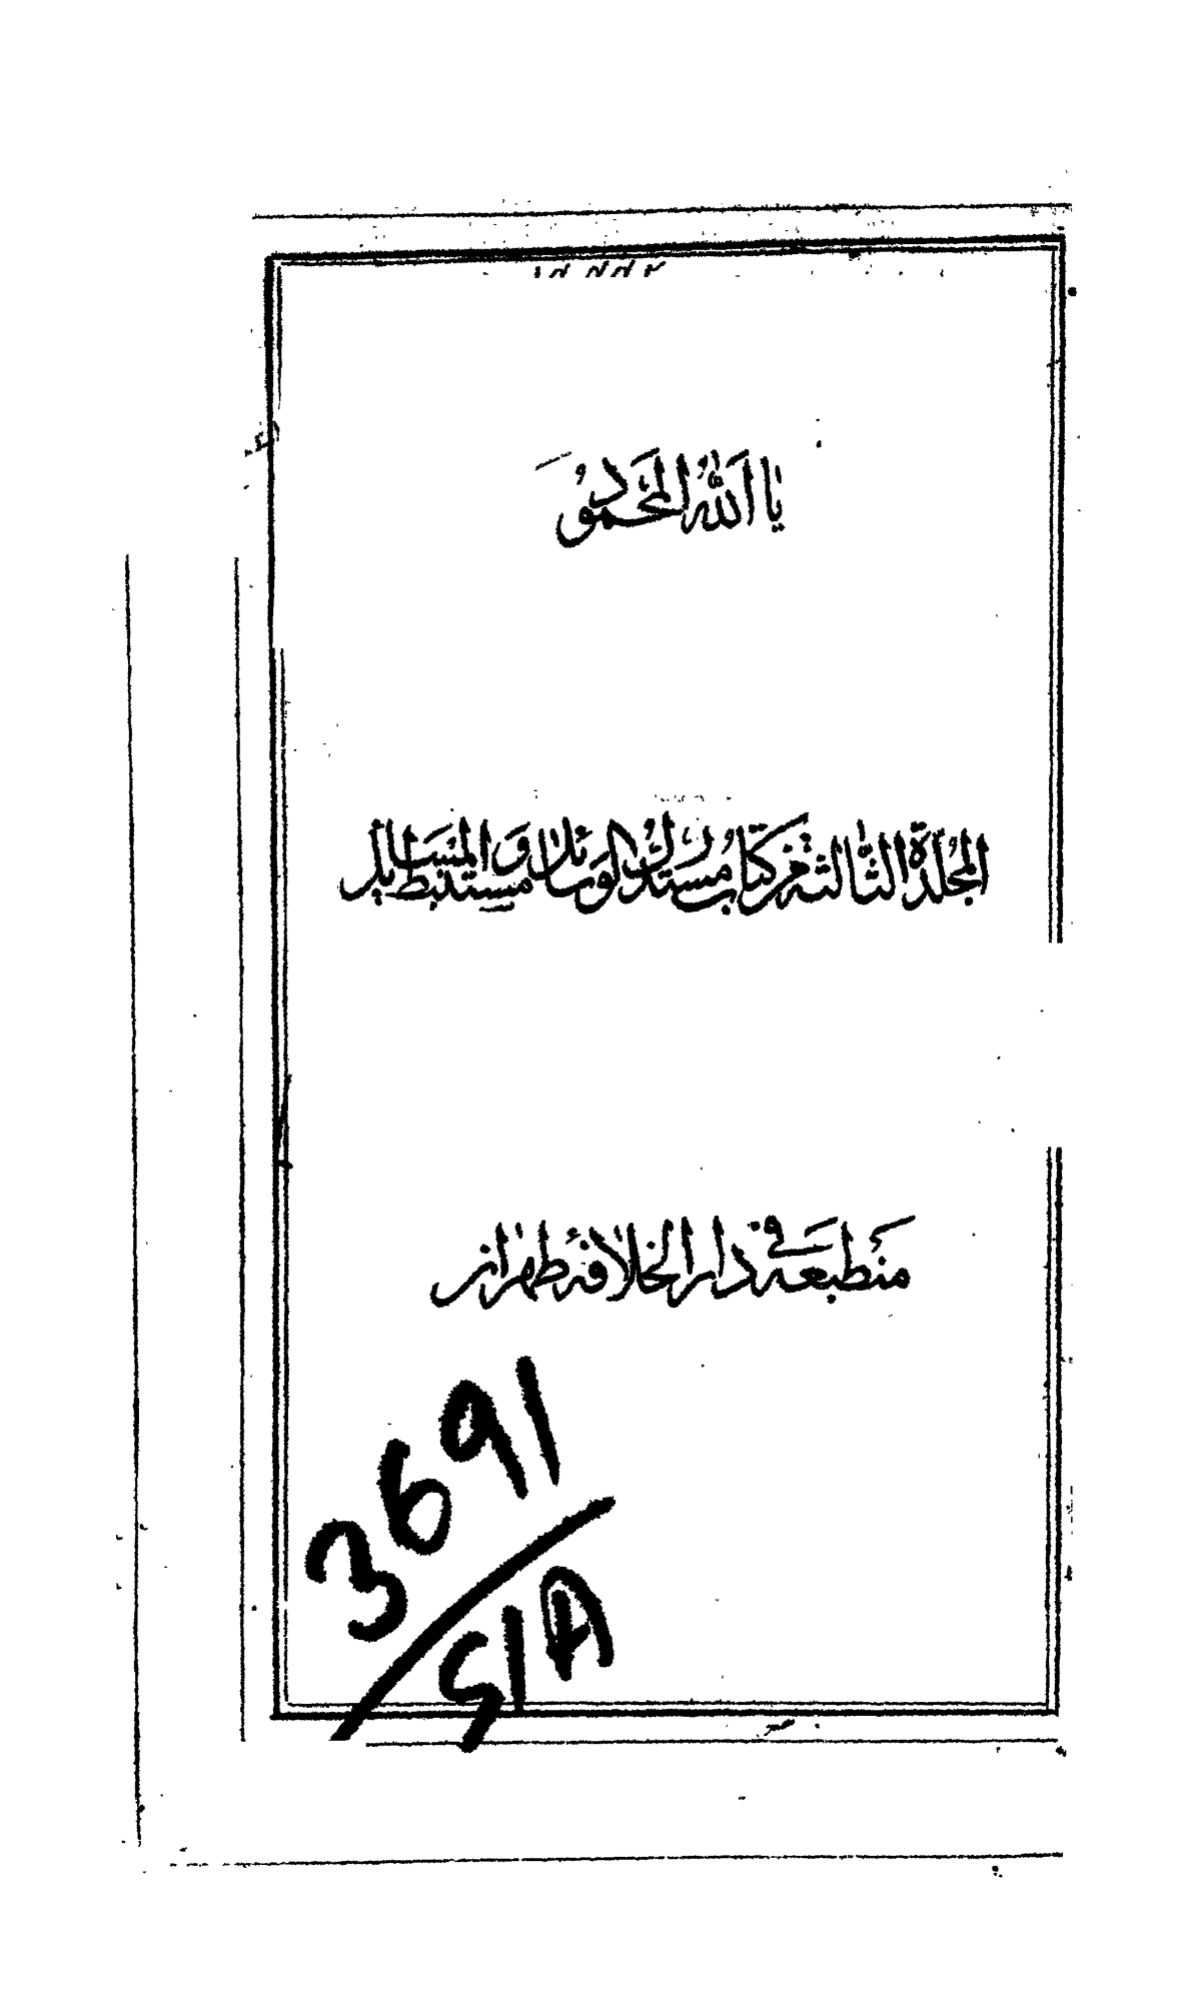 يا الله المحمود
المجلدة الثالثة من كتاب مستدرك الوسائل و مستنبط المسائل
منطبعة في دار الخلافة طهران
3691
S/A